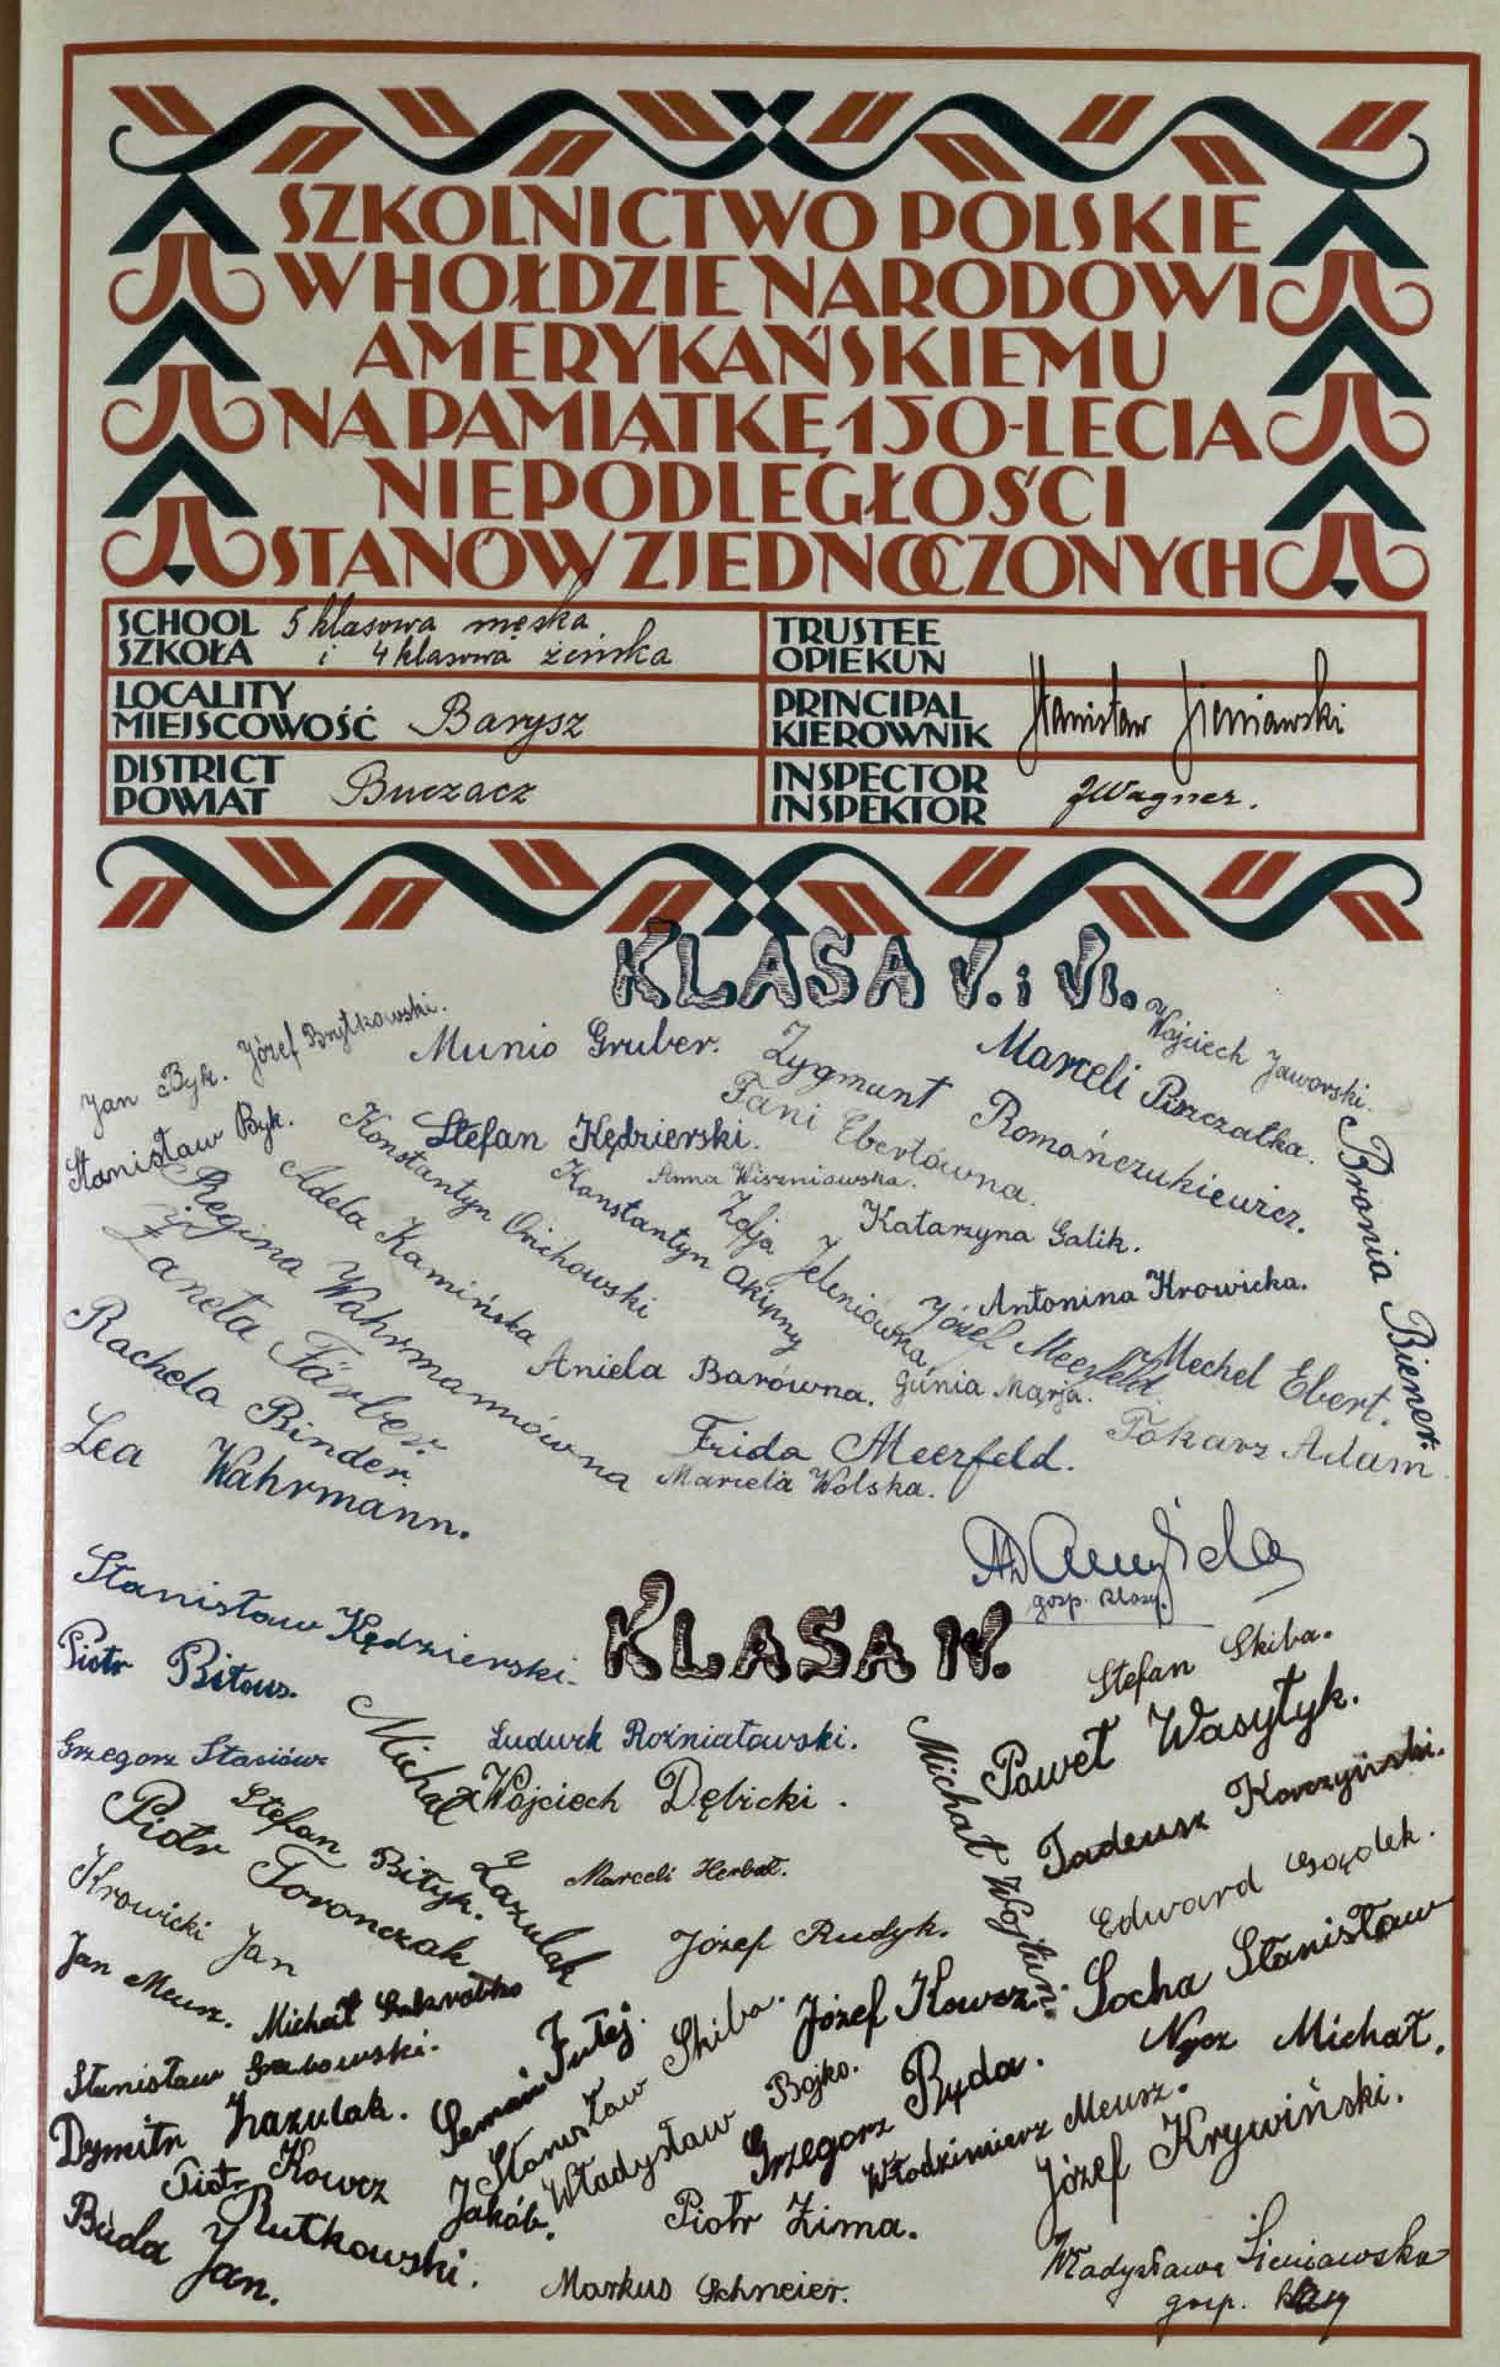 SZKOLNICTWO POLSKIE
W HOŁDZIE NARODOWI
AMERYKAŃSKIEMU
NA PAMIĄTKĘ 150-LECIA
NIEPODLEGŁOŚCI
STANÓW ZJEDNOCZONYCH
SCHOOL
SZKOŁA
5 klasowa męska
i 4 klasowa żeńska
TRUSTEE
OPIEKUN
LOCALITY
MIEJSCOWOŚĆ
Barysz
PRINCIPAL
KIEROWNIK
Stanisław Sieniawski
DISTRICT
POWIAT
Buczacz
INSPECTOR
INSPEKTOR
JWagner.
KLASA V. i VI.
Jan Byk.
Józef Brytkowski.
Munio Gruber.
Zygmunt Romańczukiewicz.
Marceli Piszczatka.
Wojciech Jaworski.
Stanisław Byk.
Konstantyn Orichowski
Stefan Kędzierski.
Fani Ebertówna.
Bronia Biener.
Regina Wahrmannówna
Adela Kamińska
Konstantyn Okipny
Anna Wiszniowska.
Zofja Jeleniówna
Katarzyna Galik.
Żaneta Färber.
Antonina Krowicka.
Józef Meerfeld
Mechel Ebert.
Rachela Binder.
Aniela Barówna.
Gunia Marja.
Lea Wahrmann.
Frida Meerfeld.
Tokarz Adam
Marcela Wolska.
gosp. klasy.
KLASA IV.
Stanisław Kędzierski.
Stefan Skiba.
Piotr Bitous.
Michał Zazulak
Ludwik Rożniatowski.
Michał Wojtun.
Paweł Wasyłyk.
Grzegorz Stasiów
Wojciech Dębicki.
Tadeusz Korczyński.
Piotr Toronczak
Stefan Bityk.
Marceli Herbut.
Edward Gządek.
Krowicki Jan
Józef Rudyk.
Jan Meusz.
Michał
Józef Kowcz.
Socha Stanisław
Stanisław Grabowski.
Semań Futej.
Stanisław Skiba.
Nycz Michał.
Dymitr Zazulak.
Władysław Bojko.
Grzegorz Ryda.
Włodzimierz Meusz.
Józef Krywiński.
Piotr Kowcz
Jakób Rutkowski.
Piotr Zima.
Buda Jan.
Markus Schneier.
Władysława Sieniawska
gosp. klasy